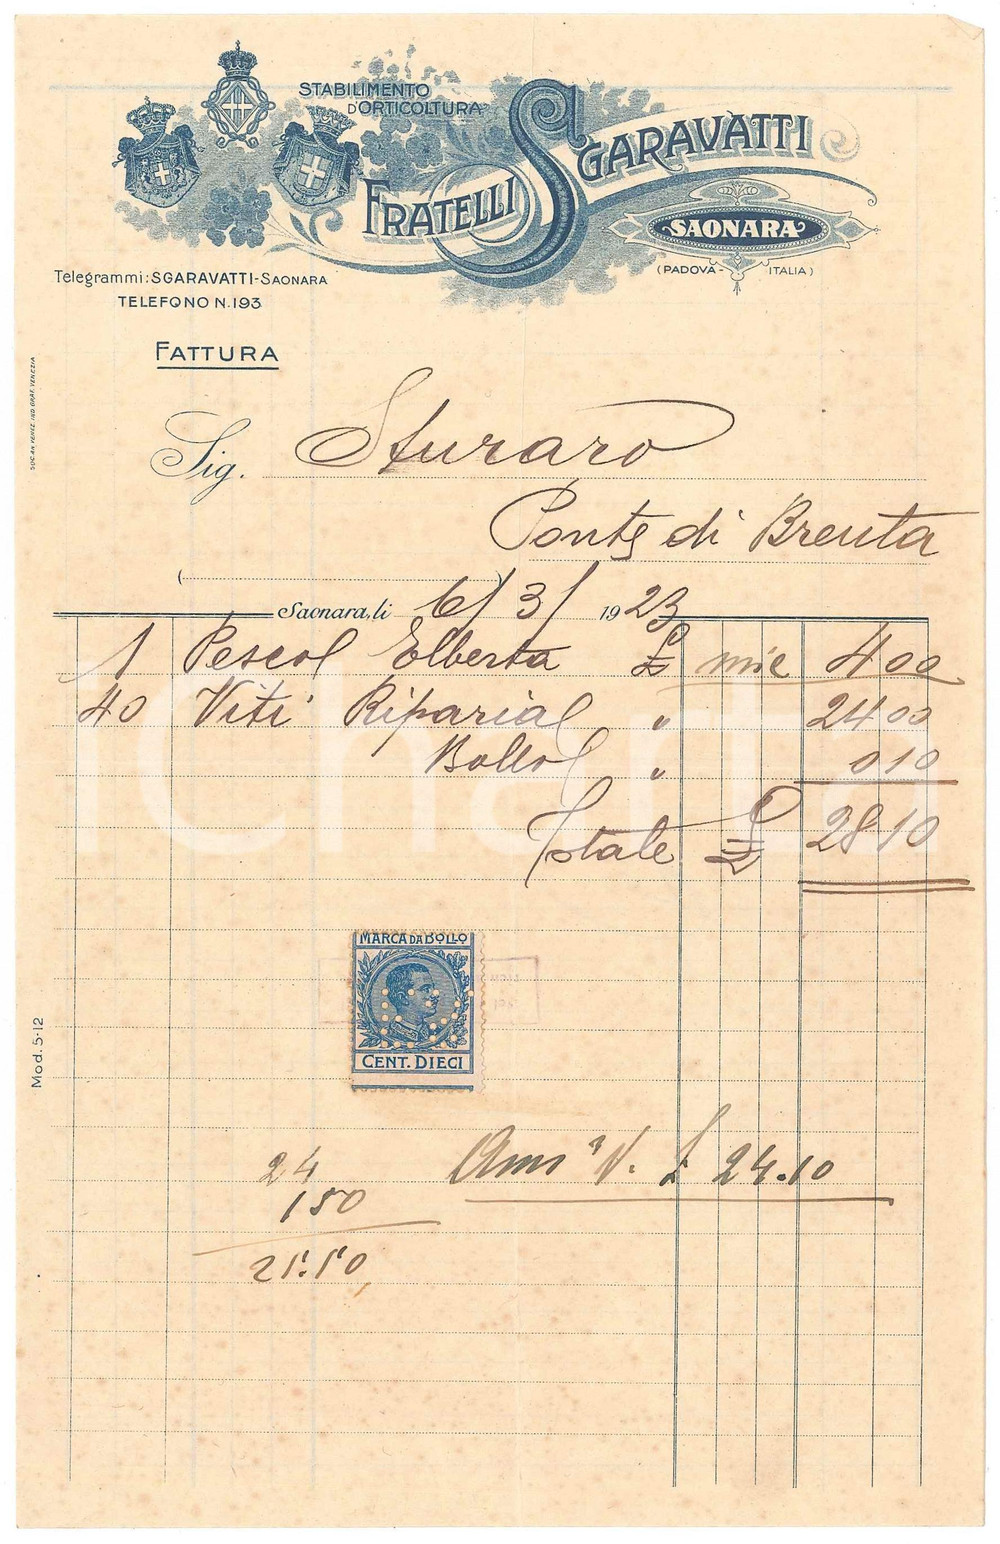 STABILIMENTO
D'ORTICOLTURA
FRATELLI SGARAVATTI
SAONARA
(PADOVA - ITALIA)
Telegrammi: SGARAVATTI-SAONARA
TELEFONO N. 193
FATTURA
SOC. AN. VENEZ. IND. GRAF. VENEZIA
Sig. Sturaro
Ponte di Brenta
Saonara, li 6/3/1923
1 Pescol Elberta £ mie 4 00
40 Viti Riparial " 24 00
Bollol " 0 10
Totale £ 28 10
MARCA DA BOLLO
CENT. DIECI
Mod. 5-12
£ 24.10
24
150
21.10
iCharta